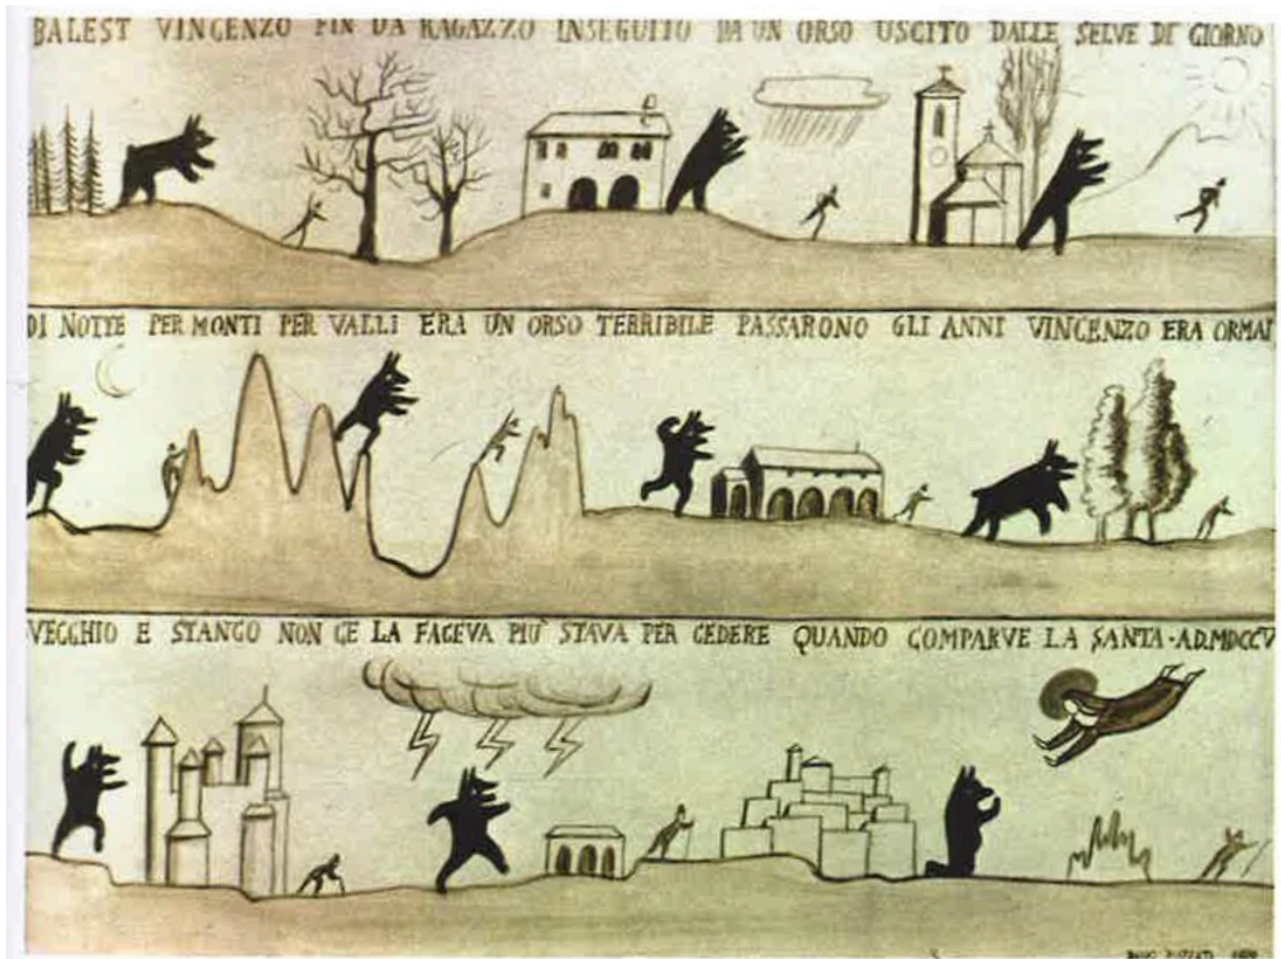 BALEST VINCENZO FIN DA RAGAZZO INSEGUITO DA UN ORSO USCITO DALLE SELVE DI GIORNO
DI NOTTE PER MONTI PER VALLI ERA UN ORSO TERRIBILE PASSARONO GLI ANNI VINCENZO ERA ORMAI
VECCHIO E STANCO NON CE LA FACEVA PIÙ STAVA PER CEDERE QUANDO COMPARVE LA SANTA·A.D.MDCCV